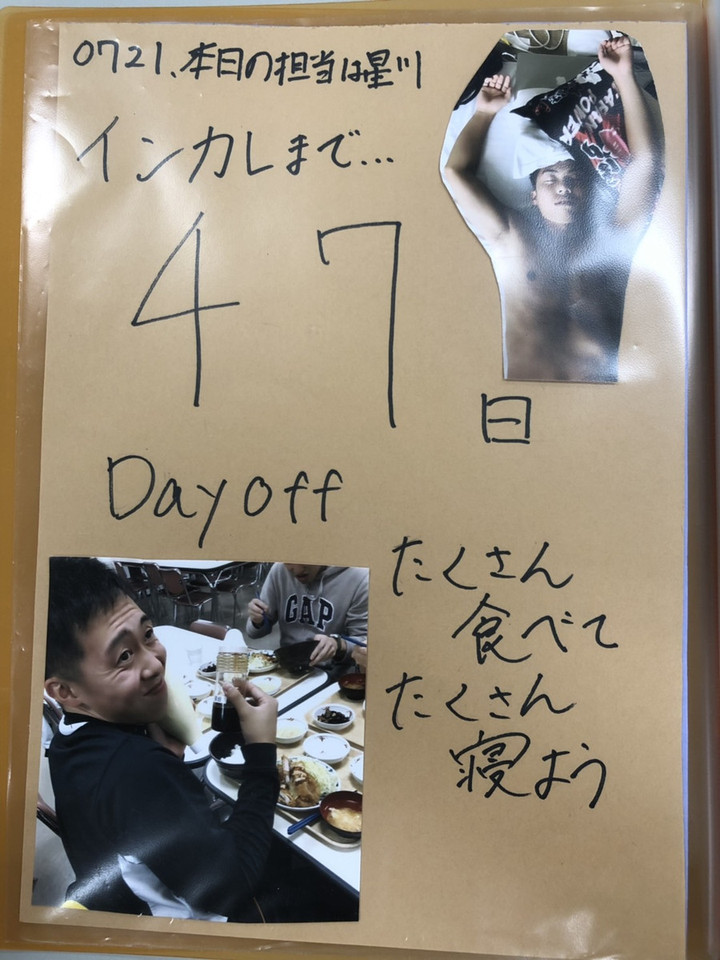 0721、本日の担当は星川
インカレまで...
47
日
Day off
たくさん
食べて
たくさん
寝よう
GAP